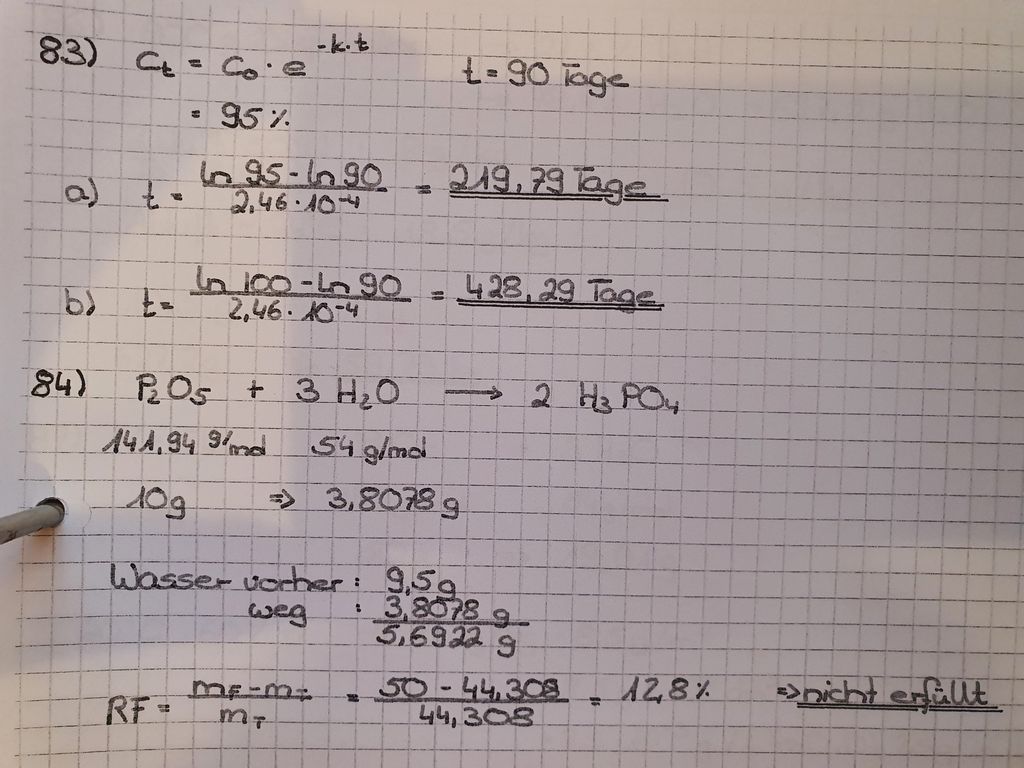 83) Ct = C0 · e^-k·t t = 90 Tage
= 95 %
a) t = (ln 95 - ln 90) / (2,46 · 10^-4) = 219,79 Tage
b) t = (ln 100 - ln 90) / (2,46 · 10^-4) = 428,29 Tage
84) P2O5 + 3 H2O → 2 H3PO4
141,94 g/mol 54 g/mol
10g ⇒ 3,8078 g
Wasser vorher : 9,5g
weg : 3,8078 g
5,6922 g
RF = (mF - mT) / mT = (50 - 44,308) / 44,308 = 12,8 % ⇒ nicht erfüllt